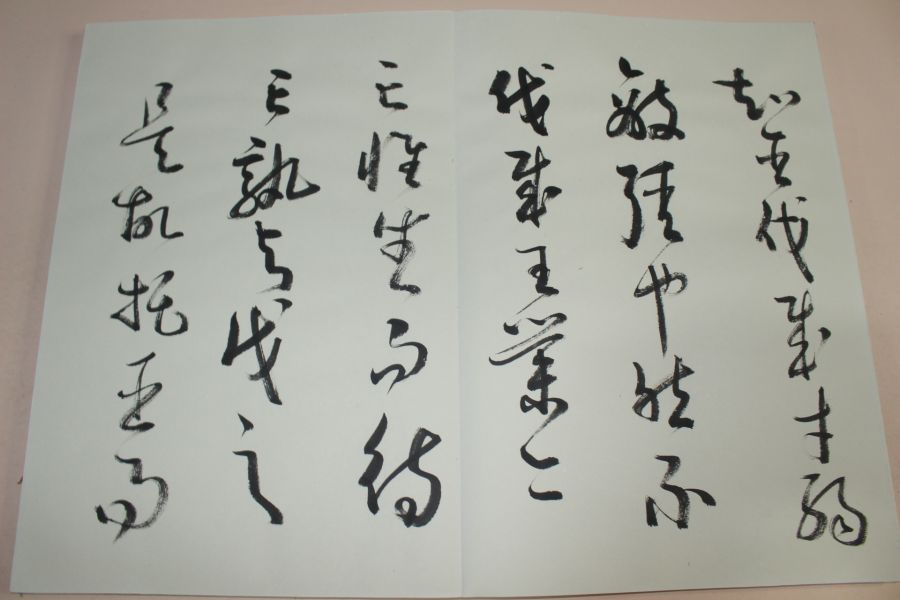 知臣伐賊才弱
敵強也然不
伐賊王業亦
亡惟坐而待
亡孰与伐之
是故托臣而